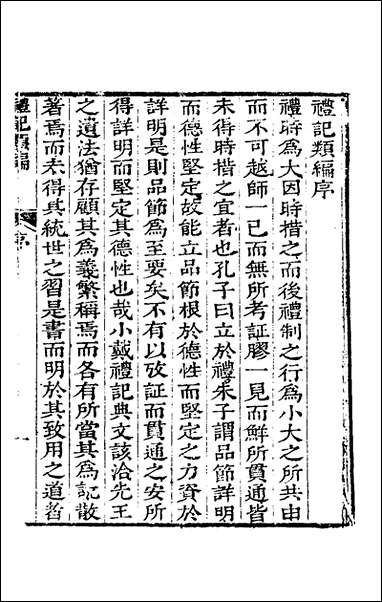 禮記類編序
禮時為大因時措之而後禮制之行為小大之所共由
而不可越師一己而無所考証膠一見而鮮所貫通皆
未得時措之宜者也孔子曰立於禮朱子謂品節詳明
而德性堅定故能立品節根於德性而堅定之力資於
詳明是則品節為至要矣不有以攷証而貫通之安所
得詳明而堅定其德性也哉小戴禮記典文該洽先王
之遺法猶存顧其為義繁稱焉而各有所當其為記散
著焉而未得其統世之習是書而明於其致用之道者
禮記類編
序
一